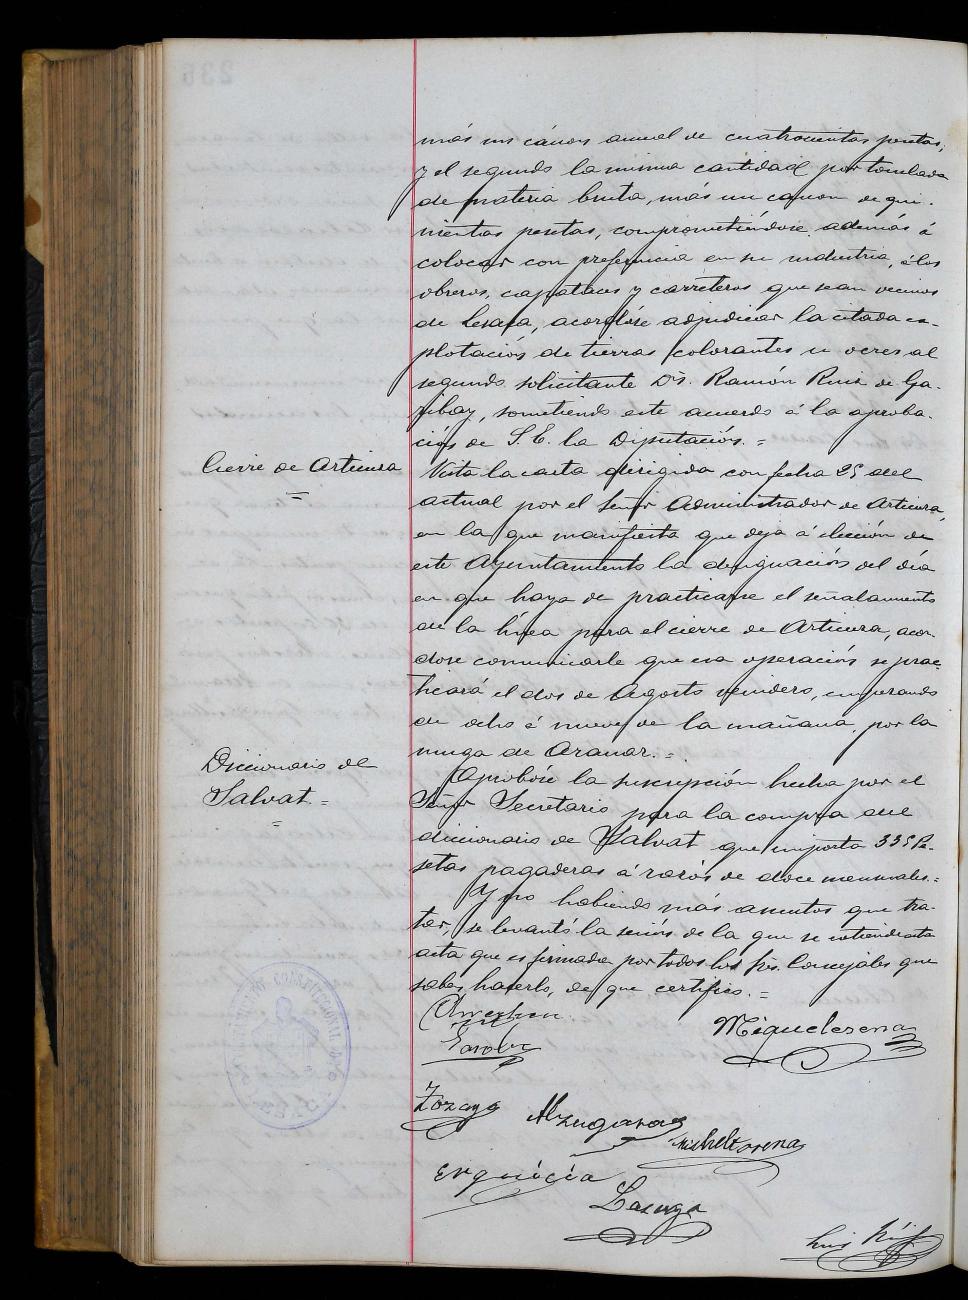 más un cánon anual de cuatrocientas pesetas,
y el segundo la misma cantidad por tonelada
de materia bruta, más un canon de qui-
nientas pesetas, comprometiéndose además á
colocar con preferencia en su industria, á los
obreros, capataces y carreteros que sean vecinos
de Lesaca, acordóse adjudicar la citada es-
plotación de tierras colorantes u ocres al
segundo solicitante Dn. Ramón Ruiz de Ga-
ribay, sometiendo este acuerdo á la aproba-
ción de S. E. la Diputación. =
Cierre de Articuza
=
Vista la carta dirigida con fecha 25 del
actual por el Señor Administrador de Articuza,
en la que manifiesta que deja á elección de
este Ayuntamiento la designación del día
en que haya de practicarse el señalamiento
de la línea para el cierre de Articuza, acor-
dose comunicarle que esa operación se prac-
ticará el dos de Agosto venidero, empezando
de ocho á nueve de la mañana, por la
muga de Aranaz. =
Diccionario de
Salvat =
=
Aprobóse la suscripción hecha por el
Señor Secretario para la compra del
diccionario de Salvat que importa 335 Pe-
setas pagaderas á razón de doce mensuales. =
Y no habiendo más asuntos que tra-
tar, se levantó la sesión de la que se extiende esta
acta que es firmada por todos los Sres. Concejales que
saben hacerlo, de que certifico. =
Miquelerena
Zozaya
Alzugaray
Michelторena
Erquicia
Lasaga
Luis
AYUNTAMIENTO CONSTITUCIONAL
LESACA
236